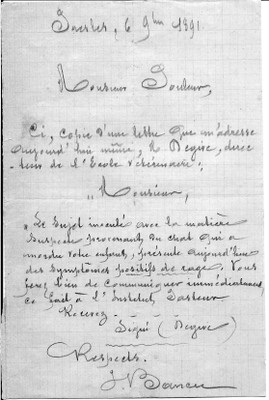 6 9bre 1891
Monsieur
Ci, copie d'une lettre que m'adresse
aujourd'hui même, M Degive, direc
teur de l'Ecole vétérinaire:
"Monsieur,
"Le Sujet inoculé avec la matière
suspecte provenant du chat qui a
mordu votre enfant, présente aujourd'hui
des symptômes positifs de rage. Vous
ferez bien de communiquer immédiatement
ce fait à l'Institut Pasteur
Recevez
Signé (Degive)
Respects.